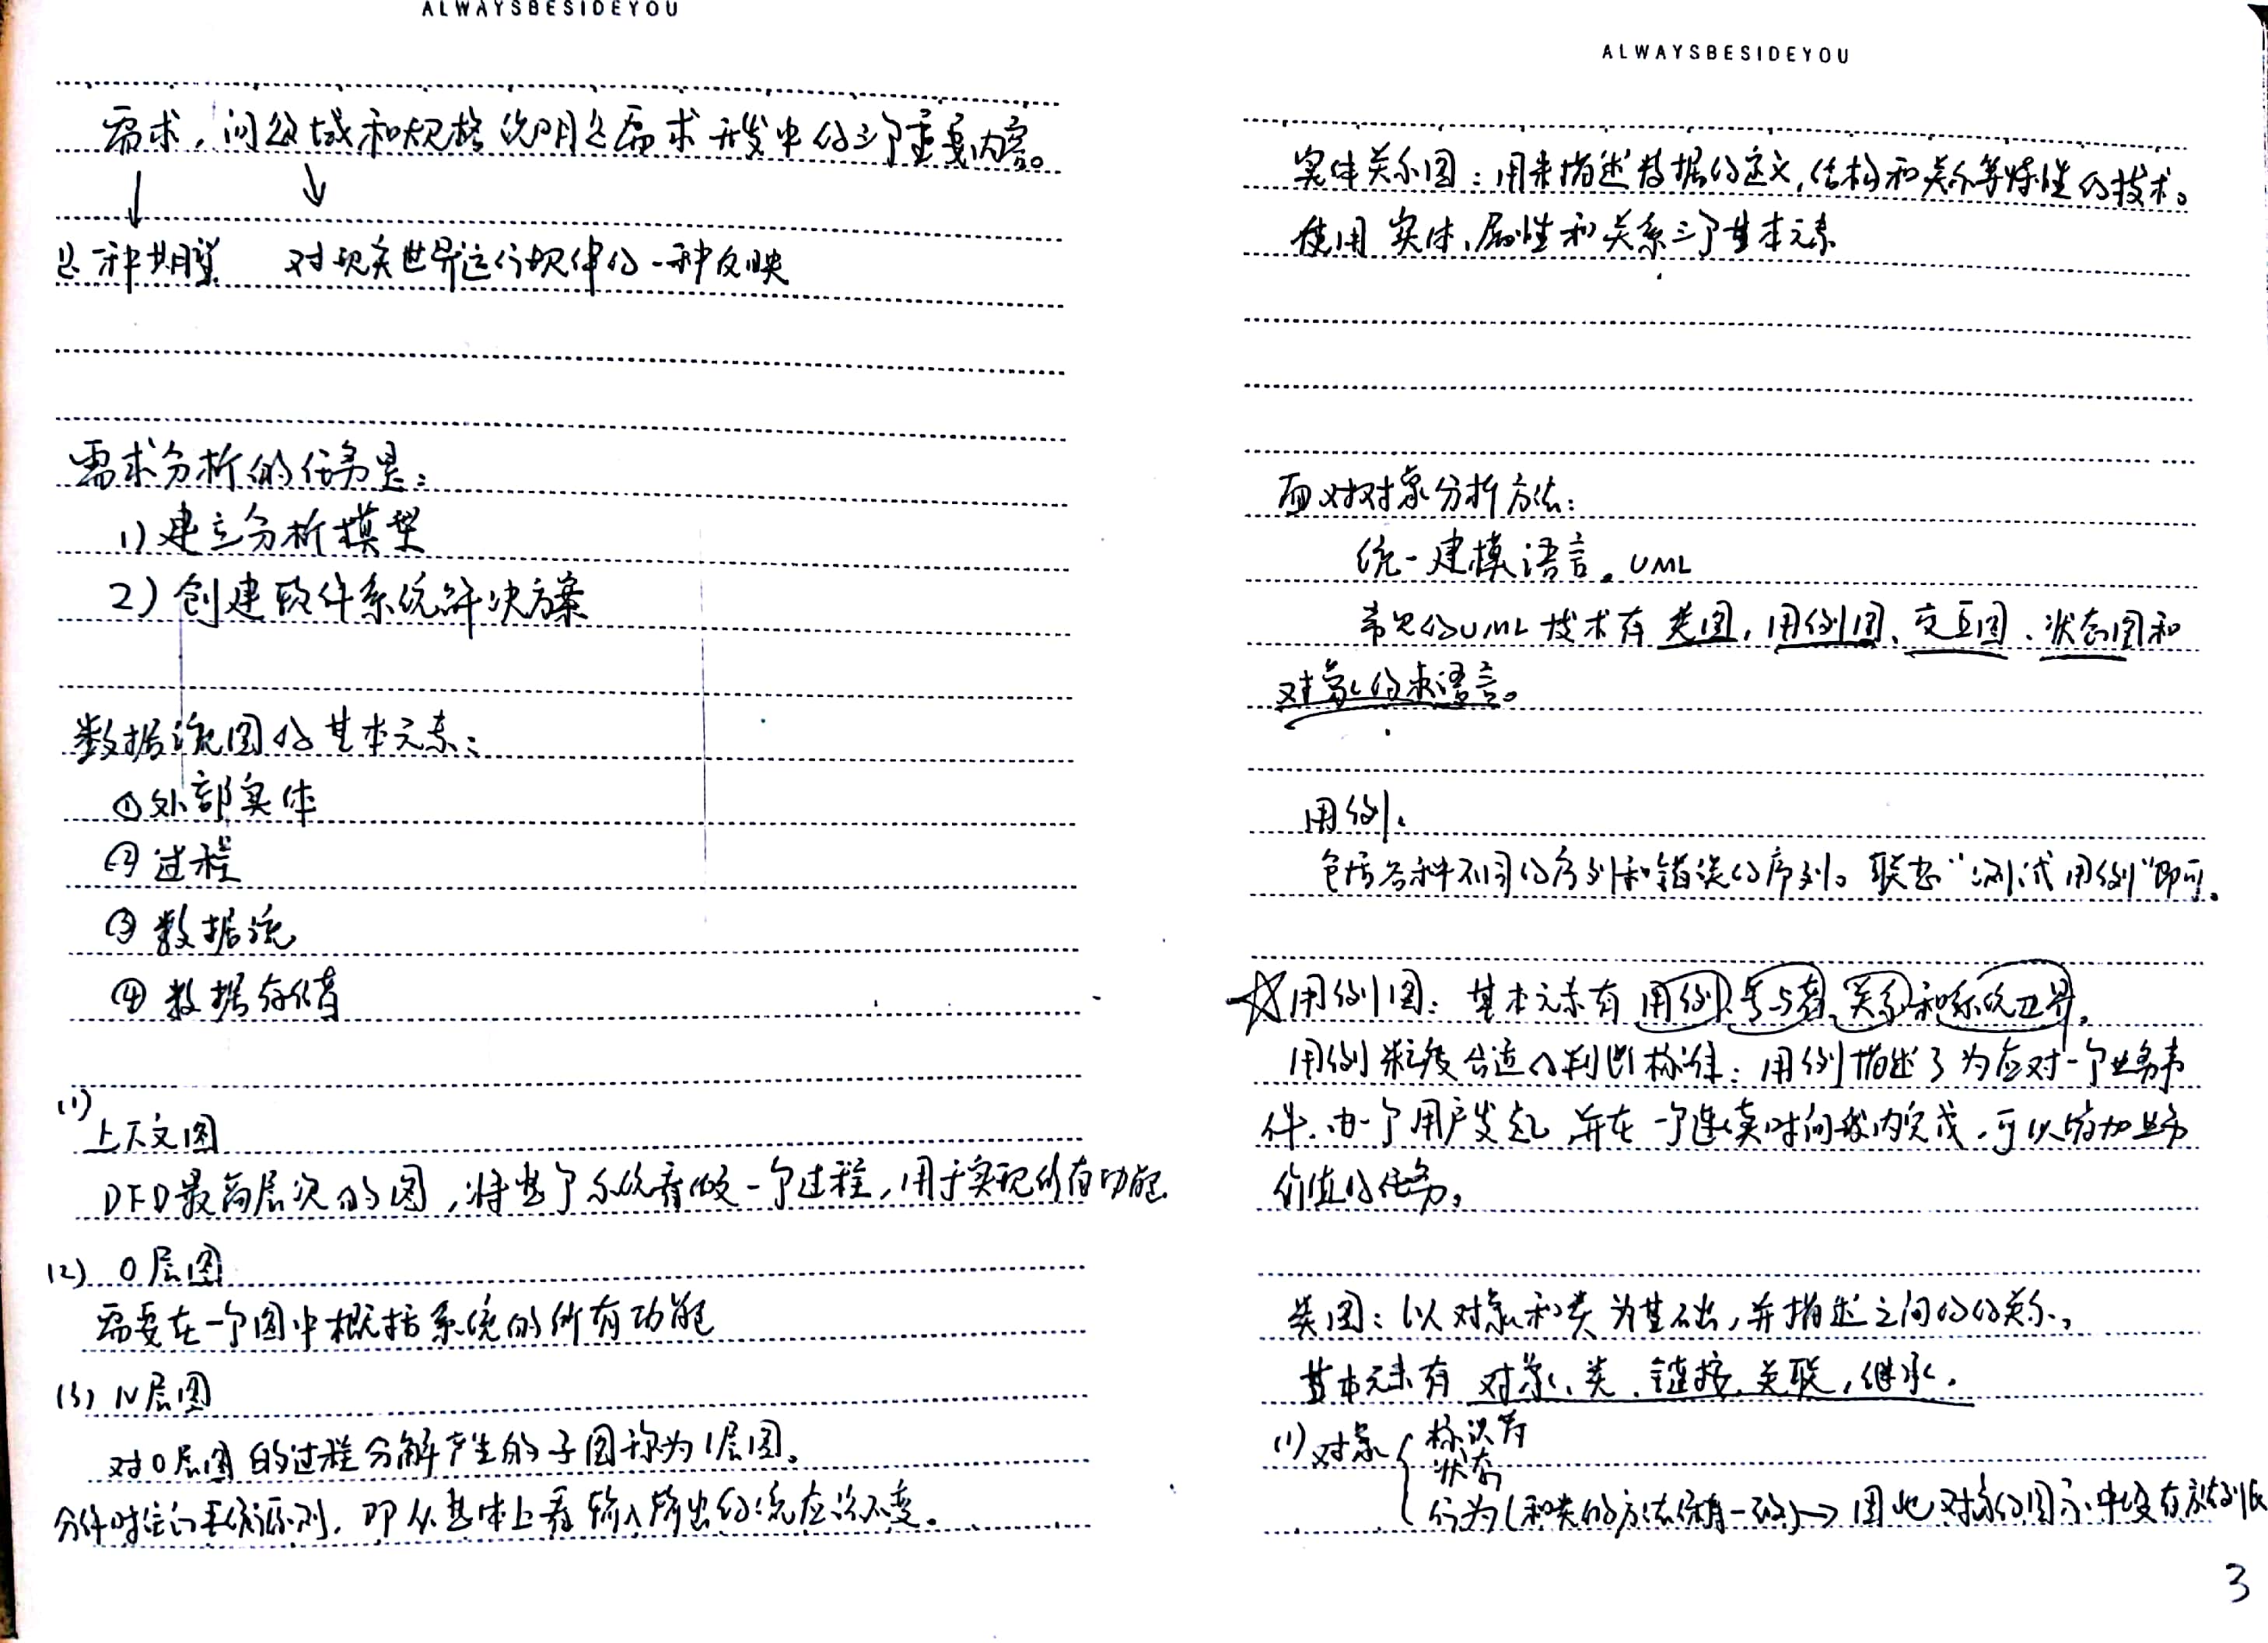 ALWAYSBESIDEYOU
需求,问题域和规格说明是需求开发中的三个重要内容。
↓ ↓
是一种期望 对现实世界运行规律的一种反映
需求分析的任务是:
1)建立分析模型
2)创建软件系统解决方案
数据流图的基本元素:
①外部实体
②过程
③数据流
④数据存储
(1)
上下文图
DFD最高层次的图,将整个系统看做一个过程,用于实现所有功能
(2) 0层图
需要在一个图中概括系统的所有功能
(3) N层图
对0层图的过程分解产生的子图称为1层图。
分解时应该 原则,即从整体上看输入输出的流应该不变。
ALWAYSBESIDEYOU
实体关系图:用来描述数据的定义,结构和关系等特性的技术。
使用 实体、属性和关系三个基本元素
面对对象分析方法:
统一建模语言。UML
常见的UML技术有 类图,用例图、交互图、状态图和
对象约束语言。
用例:
包括各种不同的序列和错误的序列。联想“测试用例”即可。
☆用例图:基本元素有 用例、参与者、关系和系统边界。
用例粒度合适的判断标准:用例描述了为应对一个业务事
件,由一个用户发起,并在一个连续时间段内完成,可以增加业务
价值的任务。
类图:以对象和类为基础,并描述之间的的关系,
基本元素有 对象、类、链接、关联,继承.
(1)对象{ 标识符
状态
行为(和类的方法保持一致)→因此对象的图示中没有方法
3